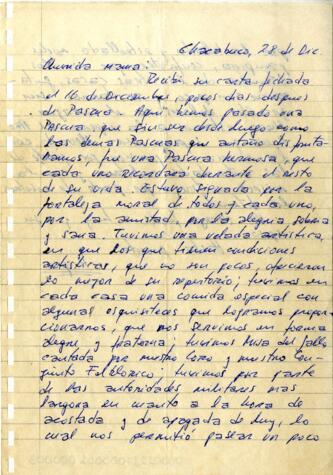 Chacabuco, 28 de Dic.
Querida mamá:
Recibí su carta fechada
el 16 de Diciembre, pocos días después
de Pascua. Aquí hemos pasado una
Pascua que sin ser desde luego como
las demás Pascuas que antaño disfrutá-
bamos, fue una Pascua hermosa, que
cada uno recordará durante el resto
de su vida. Estuvo signada por la
fortaleza moral de todos y cada uno,
por la amistad, por la alegría sobria
y sana. Tuvimos una velada artística,
en que los que tienen condiciones
artísticas, que no son pocos, ofrecieron
lo mejor de su repertorio; tuvimos en
cada casa una comida especial con
algunas exquisiteces que logramos propor-
cionarnos, que nos servimos en forma
alegre y fraterna; tuvimos Misa del Gallo
cantada por nuestro Coro y nuestro Con-
junto Folklórico; tuvimos por parte
de las autoridades militares más
largona en cuanto a la hora de
acostada y de apagada de luz, lo
cual nos permitió pasar un poco